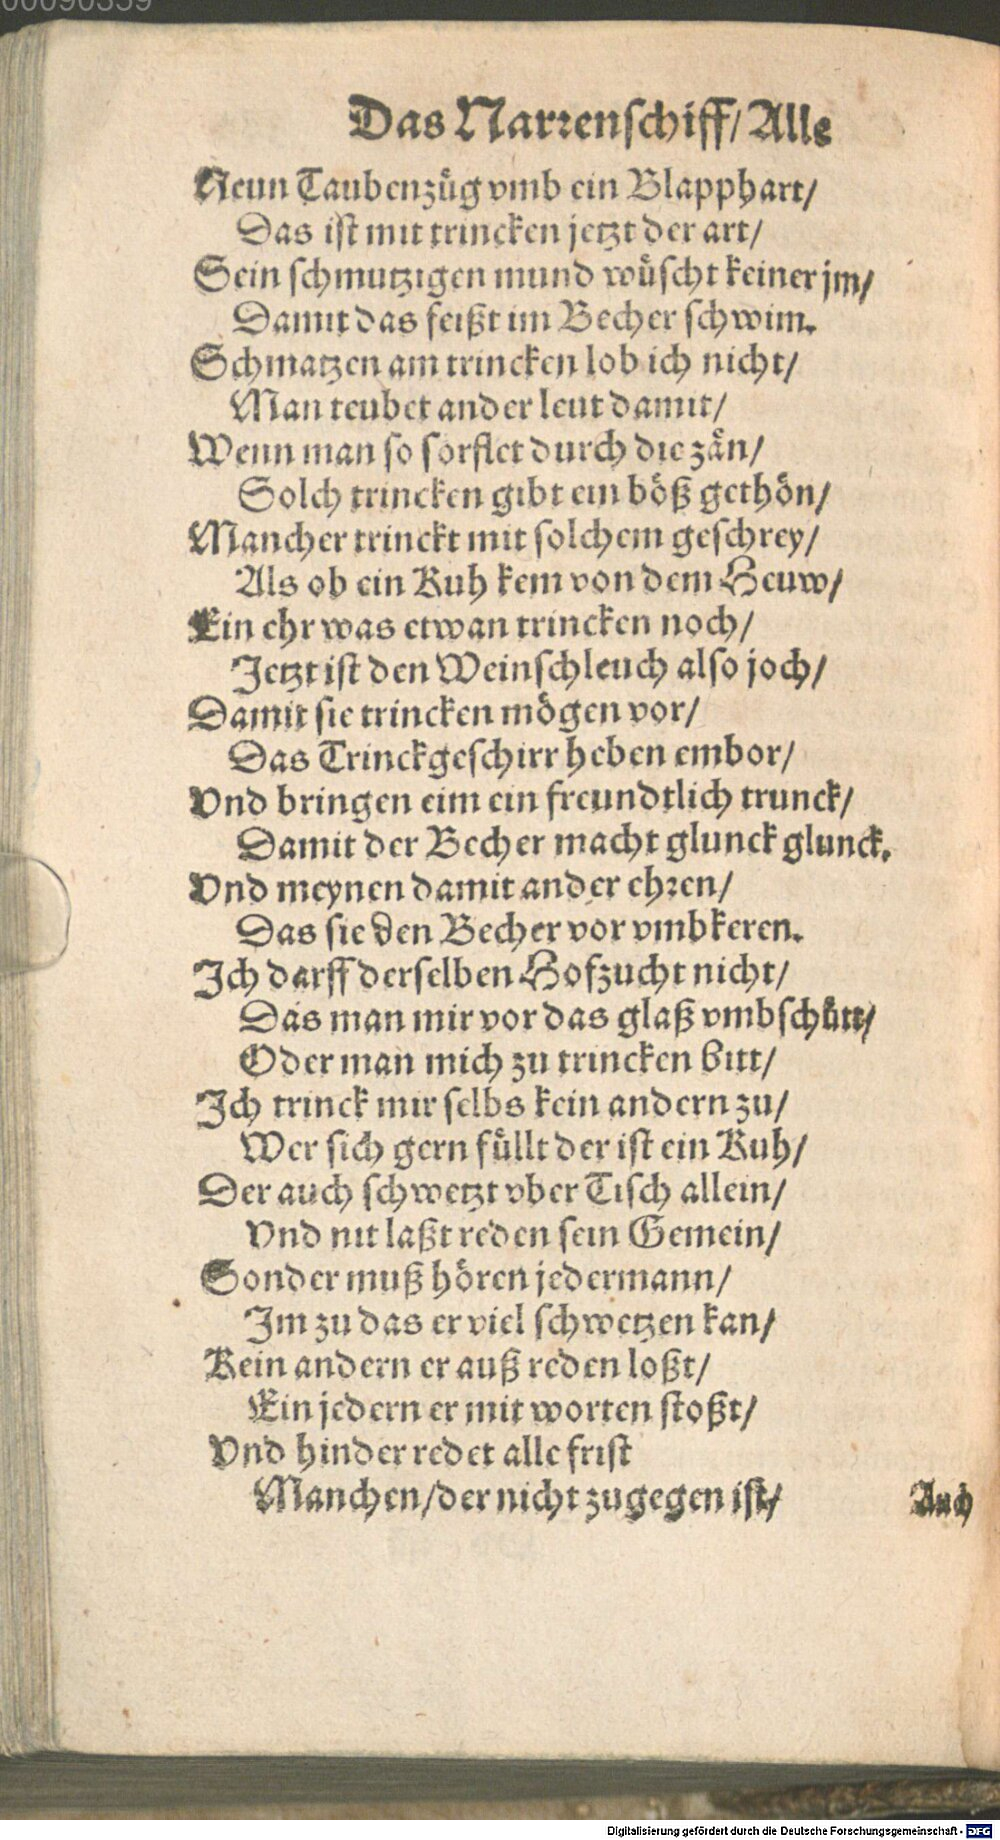 00090359
Das Narrenschiff / Alle
Neun Taubenzüg vmb ein Blapphart /
Das ist mit trincken jetzt der art /
Sein schmutzigen mund wüscht keiner jm /
Damit das feißt im Becher schwim.
Schmatzen am trincken lob ich nicht /
Man teubet ander leut damit /
Wenn man so sorflet durch die zän /
Solch trincken gibt ein böß gethön /
Mancher trinckt mit solchem geschrey /
Als ob ein Kuh kem von dem Heuw /
Ein ehr was etwan trincken noch /
Jetzt ist den Weinschleuch also joch /
Damit sie trincken mögen vor /
Das Trinckgeschirr heben embor /
Vnd bringen eim ein freundtlich trunck /
Damit der Becher macht glunck glunck.
Vnd meynen damit ander ehren /
Das sie den Becher vor vmbkeren.
Ich darff derselben Hofzucht nicht /
Das man mir vor das glaß vmbschütt /
Oder man mich zu trincken bitt /
Ich trinck mir selbs kein andern zu /
Wer sich gern füllt der ist ein Kuh /
Der auch schwetzt vber Tisch allein /
Vnd nit laßt reden sein Gemein /
Sonder muß hören jedermann /
Im zu das er viel schwetzen kan /
Kein andern er auß reden loßt /
Ein jedern er mit worten stoßt /
Vnd hinder redet alle frist
Manchen / der nicht zugegen ist /
Auch
Digitalisierung gefördert durch die Deutsche Forschungsgemeinschaft - DFG